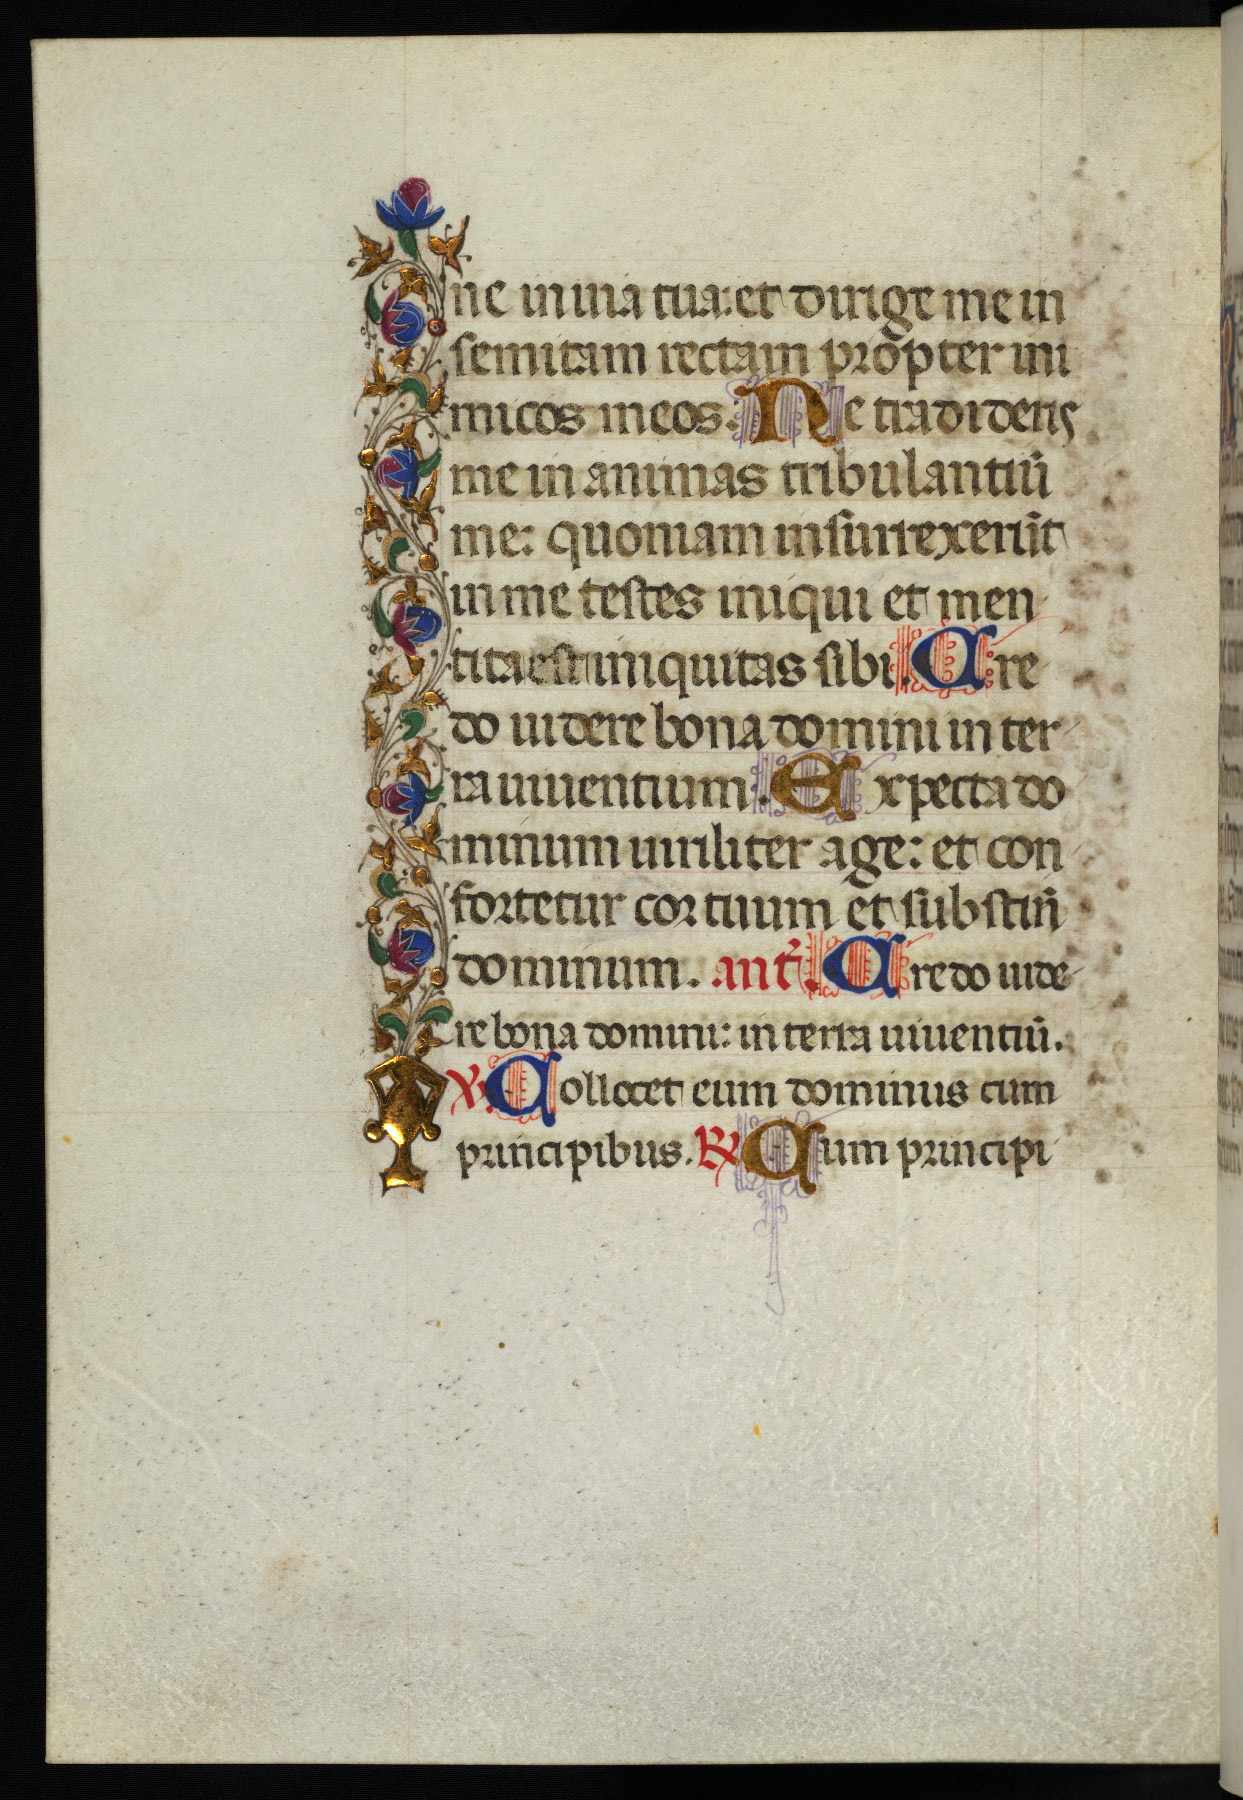 ne in uia tua: et dirige me in
semitam rectam propter ini
micos meos. Ne tradideris
me in animas tribulantiū
me: quoniam insurrexerūt
in me testes iniqui et men
tita est iniquitas sibi. Cre
do uidere bona domini in ter
ra uiuentium. Expecta do
minum uiriliter age: et con
fortetur cor tuum et substin̄
dominum. ant̄. Credo uide
re bona domini: in terra uiuentiū.
℣. Collocet eum dominus cum
principibus. ℟ Cum principi